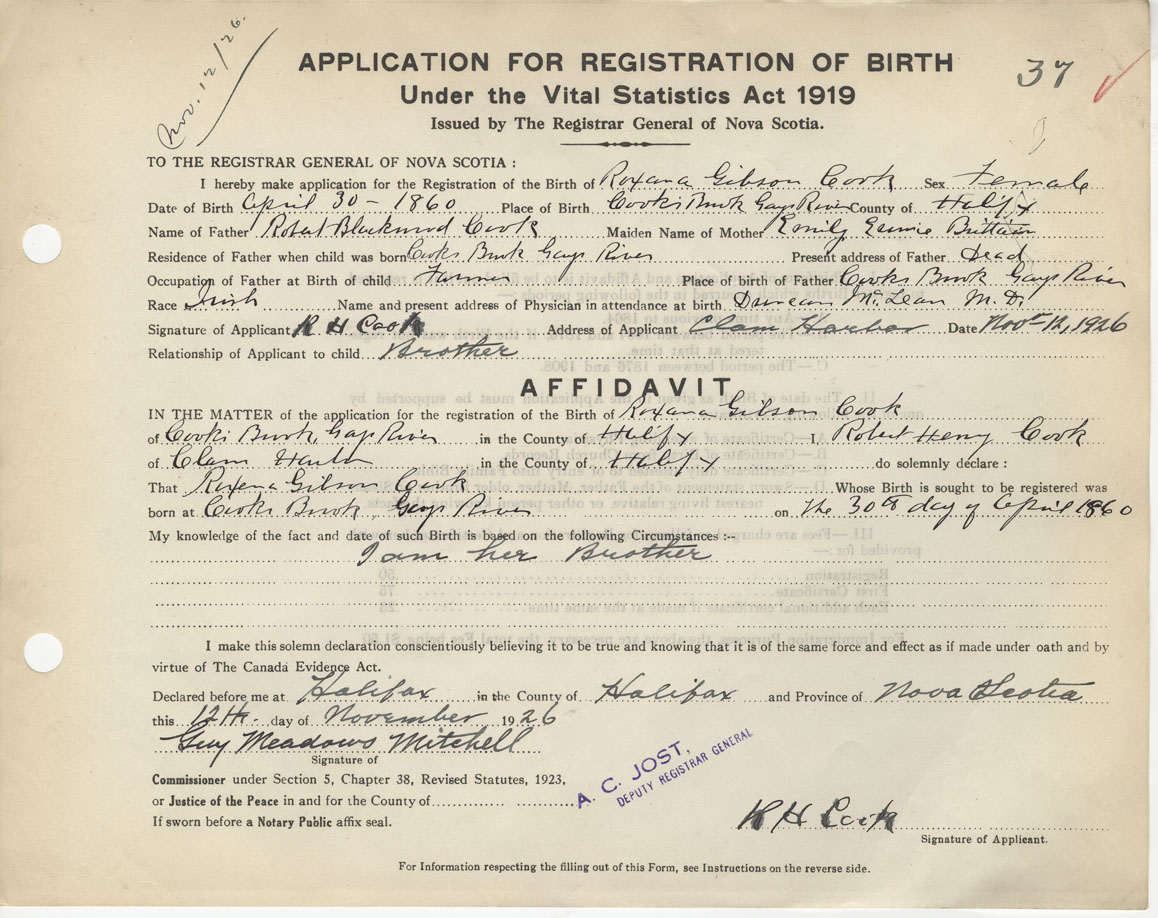 Nov. 12/26.
APPLICATION FOR REGISTRATION OF BIRTH
37
Under the Vital Statistics Act 1919
Issued by The Registrar General of Nova Scotia.
TO THE REGISTRAR GENERAL OF NOVA SCOTIA :
I hereby make application for the Registration of the Birth of Roxana Gibson Cook Sex Female
Date of Birth April 30 - 1860 Place of Birth Cooks Brook Gays River County of Halifx
Name of Father Robert Blackwood Cook Maiden Name of Mother Emily Brittain
Residence of Father when child was born Cooks Brook Gays River Present address of Father Dead
Occupation of Father at Birth of child Farmer Place of birth of Father Cooks Brook Gays River
Race Irish Name and present address of Physician in attendance at birth Duncan McLean M.D.
Signature of Applicant R H Cook Address of Applicant Clam Harbor Date Nov 12, 1926
Relationship of Applicant to child Brother
AFFIDAVIT
IN THE MATTER of the application for the registration of the Birth of Roxana Gibson Cook
of Cooks Brook, Gays River in the County of Halifx I, Robert Henry Cook
of Clam Harbor in the County of Halifx do solemnly declare :
That Roxena Gibson Cook Whose Birth is sought to be registered was
born at Cooks Brook, Gays River on The 30th day of April 1860
My knowledge of the fact and date of such Birth is based on the following Circumstances :--
I am her Brother
I make this solemn declaration conscientiously believing it to be true and knowing that it is of the same force and effect as if made under oath and by
virtue of The Canada Evidence Act.
Declared before me at Halifax in the County of Halifax and Province of Nova Scotia
this 12th. day of November 1926
Guy Meadows Mitchell
Signature of
Commissioner under Section 5, Chapter 38, Revised Statutes, 1923,
or Justice of the Peace in and for the County of
If sworn before a Notary Public affix seal.
A. C. JOST,
DEPUTY REGISTRAR GENERAL
R H Cook
Signature of Applicant.
For Information respecting the filling out of this Form, see Instructions on the reverse side.